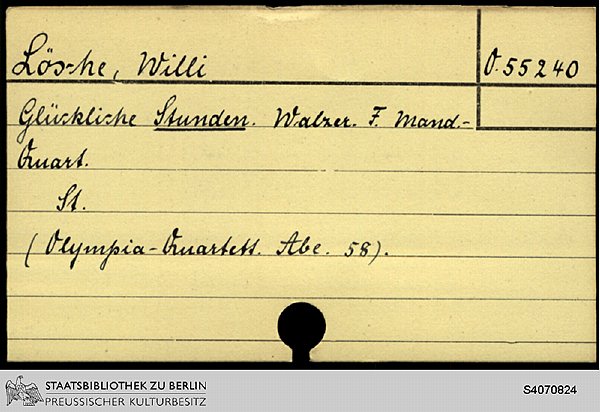 Lösche, Willi
O. 55240
Glückliche Stunden. Walzer. F. Mand.-
Quart.
St.
(Olympia-Quartett. Abe. 58).
STAATSBIBLIOTHEK ZU BERLIN
PREUSSISCHER KULTURBESITZ
S4070824